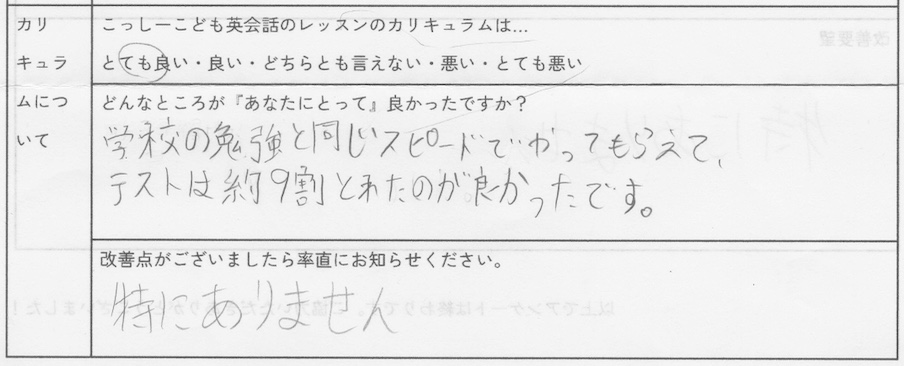 カリ
キュラ
ムにつ
いて
こっしーこども英会話のレッスンのカリキュラムは...
とても良い・良い・どちらとも言えない・悪い・とても悪い
どんなところが『あなたにとって』良かったですか?
学校の勉強と同じスピードでやってもらえて、
テストは約9割とれたのが良かったです。
改善点がございましたら率直にお知らせください。
特にありません
改善要望
以上でアンケートは終わりです。ご協力いただきありがとうございました!